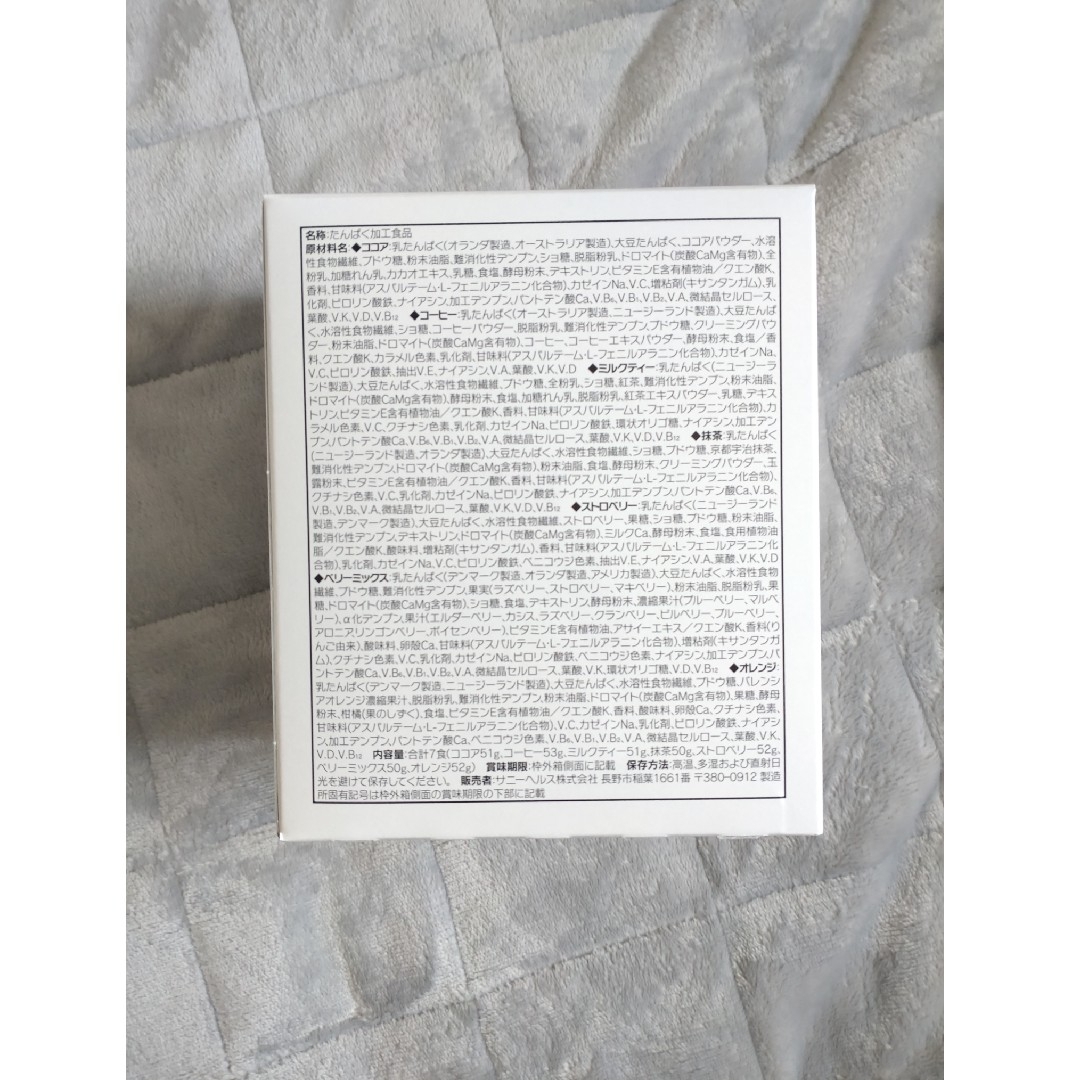 名称:たんぱく加工食品
原材料名 ◆ココア:乳たんぱく(オランダ製造、オーストラリア製造)、大豆たんぱく、ココアパウダー、水溶
性食物繊維、ブドウ糖、粉末油脂、難消化性デンプン、ショ糖、脱脂粉乳、ドロマイト(炭酸CaMg含有物)、全
粉乳、加糖れん乳、カカオエキス、乳糖、食塩、酵母粉末、デキストリン、ビタミンE含有植物油/クエン酸K、
香料、甘味料(アスパルテーム・L-フェニルアラニン化合物)、カゼインNa、V.C、増粘剤(キサンタンガム)、乳
化剤、ピロリン酸鉄、ナイアシン、加工デンプン、パントテン酸Ca、V.B₆、V.B₁、V.B₂、V.A、微結晶セルロース、
葉酸、V.K、V.D、V.B₁₂ ◆コーヒー:乳たんぱく(オーストラリア製造、ニュージーランド製造)、大豆たんぱ
く、水溶性食物繊維、ショ糖、コーヒーパウダー、脱脂粉乳、難消化性デンプン、ブドウ糖、クリーミングパウ
ダー、粉末油脂、ドロマイト(炭酸CaMg含有物)、コーヒー、コーヒーエキスパウダー、酵母粉末、食塩/香
料、クエン酸K、カラメル色素、乳化剤、甘味料(アスパルテーム・L-フェニルアラニン化合物)、カゼインNa、
V.C、ピロリン酸鉄、抽出V.E、ナイアシン、V.A、葉酸、V.K、V.D ◆ミルクティー:乳たんぱく(ニュージーラ
ンド製造)、大豆たんぱく、水溶性食物繊維、ブドウ糖、全粉乳、ショ糖、紅茶、難消化性デンプン、粉末油脂、
ドロマイト(炭酸CaMg含有物)、酵母粉末、食塩、加糖れん乳、脱脂粉乳、紅茶エキスパウダー、乳糖、デキス
トリン、ビタミンE含有植物油/クエン酸K、香料、甘味料(アスパルテーム・L-フェニルアラニン化合物)、カ
ラメル色素、V.C、クチナシ色素、乳化剤、カゼインNa、ピロリン酸鉄、環状オリゴ糖、ナイアシン、加工デン
プン、パントテン酸Ca、V.B₆、V.B₁、V.B₂、V.A、微結晶セルロース、葉酸、V.K、V.D、V.B₁₂ ◆抹茶:乳たんぱく
(ニュージーランド製造、オランダ製造)、大豆たんぱく、水溶性食物繊維、ショ糖、ブドウ糖、京都宇治抹茶、
難消化性デンプン、ドロマイト(炭酸CaMg含有物)、粉末油脂、食塩、酵母粉末、クリーミングパウダー、玉
露粉末、ビタミンE含有植物油/クエン酸K、香料、甘味料(アスパルテーム・L-フェニルアラニン化合物)、
クチナシ色素、V.C、乳化剤、カゼインNa、ピロリン酸鉄、ナイアシン、加工デンプン、パントテン酸Ca、V.B₆、
V.B₁、V.B₂、V.A、微結晶セルロース、葉酸、V.K、V.D、V.B₁₂ ◆ストロベリー:乳たんぱく(ニュージーランド
製造、デンマーク製造)、大豆たんぱく、水溶性食物繊維、ストロベリー、果糖、ショ糖、ブドウ糖、粉末油脂、
難消化性デンプン、デキストリン、ドロマイト(炭酸CaMg含有物)、ミルクCa、酵母粉末、食塩、食用植物油
脂/クエン酸K、酸味料、増粘剤(キサンタンガム)、香料、甘味料(アスパルテーム・L-フェニルアラニン化
合物)、乳化剤、カゼインNa、V.C、ピロリン酸鉄、ベニコウジ色素、抽出V.E、ナイアシン、V.A、葉酸、V.K、V.D
◆ベリーミックス:乳たんぱく(デンマーク製造、オランダ製造、アメリカ製造)、大豆たんぱく、水溶性食物
繊維、ブドウ糖、難消化性デンプン、果実(ラズベリー、ストロベリー、マキベリー)、粉末油脂、脱脂粉乳、果
糖、ドロマイト(炭酸CaMg含有物)、ショ糖、食塩、デキストリン、酵母粉末、濃縮果汁(ブルーベリー、マルベ
リー)、α化デンプン、果汁(エルダーベリー、カシス、ラズベリー、クランベリー、ビルベリー、ブルーベリー、
アロニア、リンゴンベリー、ボイセンベリー)、ビタミンE含有植物油、アサイーエキス/クエン酸K、香料(り
んご由来)、酸味料、卵殻Ca、甘味料(アスパルテーム・L-フェニルアラニン化合物)、増粘剤(キサンタンガ
ム)、クチナシ色素、V.C、乳化剤、カゼインNa、ピロリン酸鉄、ベニコウジ色素、ナイアシン、加工デンプン、パ
ントテン酸Ca、V.B₆、V.B₁、V.B₂、V.A、微結晶セルロース、葉酸、V.K、環状オリゴ糖、V.D、V.B₁₂ ◆オレンジ:
乳たんぱく(デンマーク製造、ニュージーランド製造)、大豆たんぱく、水溶性食物繊維、ブドウ糖、バレンシ
アオレンジ濃縮果汁、脱脂粉乳、難消化性デンプン、粉末油脂、ドロマイト(炭酸CaMg含有物)、果糖、酵母
粉末、柑橘(果のしずく)、食塩、ビタミンE含有植物油/クエン酸K、香料、酸味料、卵殻Ca、クチナシ色素、
甘味料(アスパルテーム・L-フェニルアラニン化合物)、V.C、カゼインNa、乳化剤、ピロリン酸鉄、ナイアシ
ン、加工デンプン、パントテン酸Ca、ベニコウジ色素、V.B₆、V.B₁、V.B₂、V.A、微結晶セルロース、葉酸、V.K、
V.D、V.B₁₂ 内容量:合計7食(ココア51g、コーヒー53g、ミルクティー51g、抹茶50g、ストロベリー52g、
ベリーミックス50g、オレンジ52g) 賞味期限:枠外箱側面に記載 保存方法:高温、多湿および直射日
光を避けて保存してください。 販売者:サニーヘルス株式会社 長野市稲葉1661番 〒380-0912 製造
所固有記号は枠外箱側面の賞味期限の下部に記載